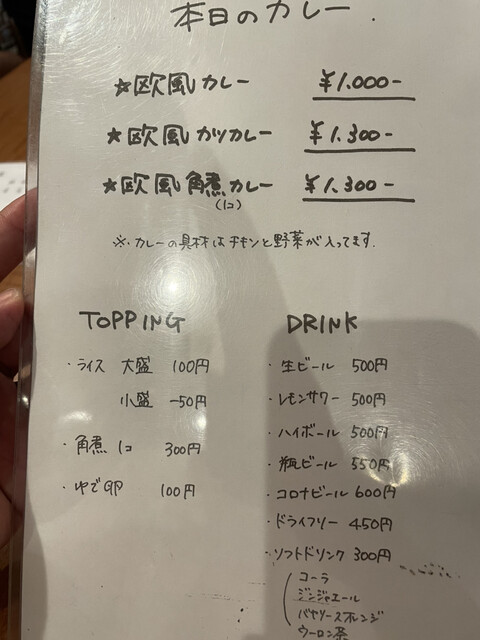 本日のカレー.
☆欧風カレー ¥1.000-
★欧風カツカレー ¥1.300-
★欧風角煮カレー ¥1.300-
(1コ)
※カレーの具材はチキンと野菜が入ってます.
TOPPING
・ライス 大盛 100円
小盛 -50円
・角煮 1コ 300円
・ゆで卵 100円
DRINK
・生ビール 500円
・レモンサワー 500円
・ハイボール 500円
・瓶ビール 550円
・コロナビール 600円
・ドライフリー 450円
・ソフトドリンク 300円
コーラ
ジンジャエール
バヤリースオレンジ
ウーロン茶